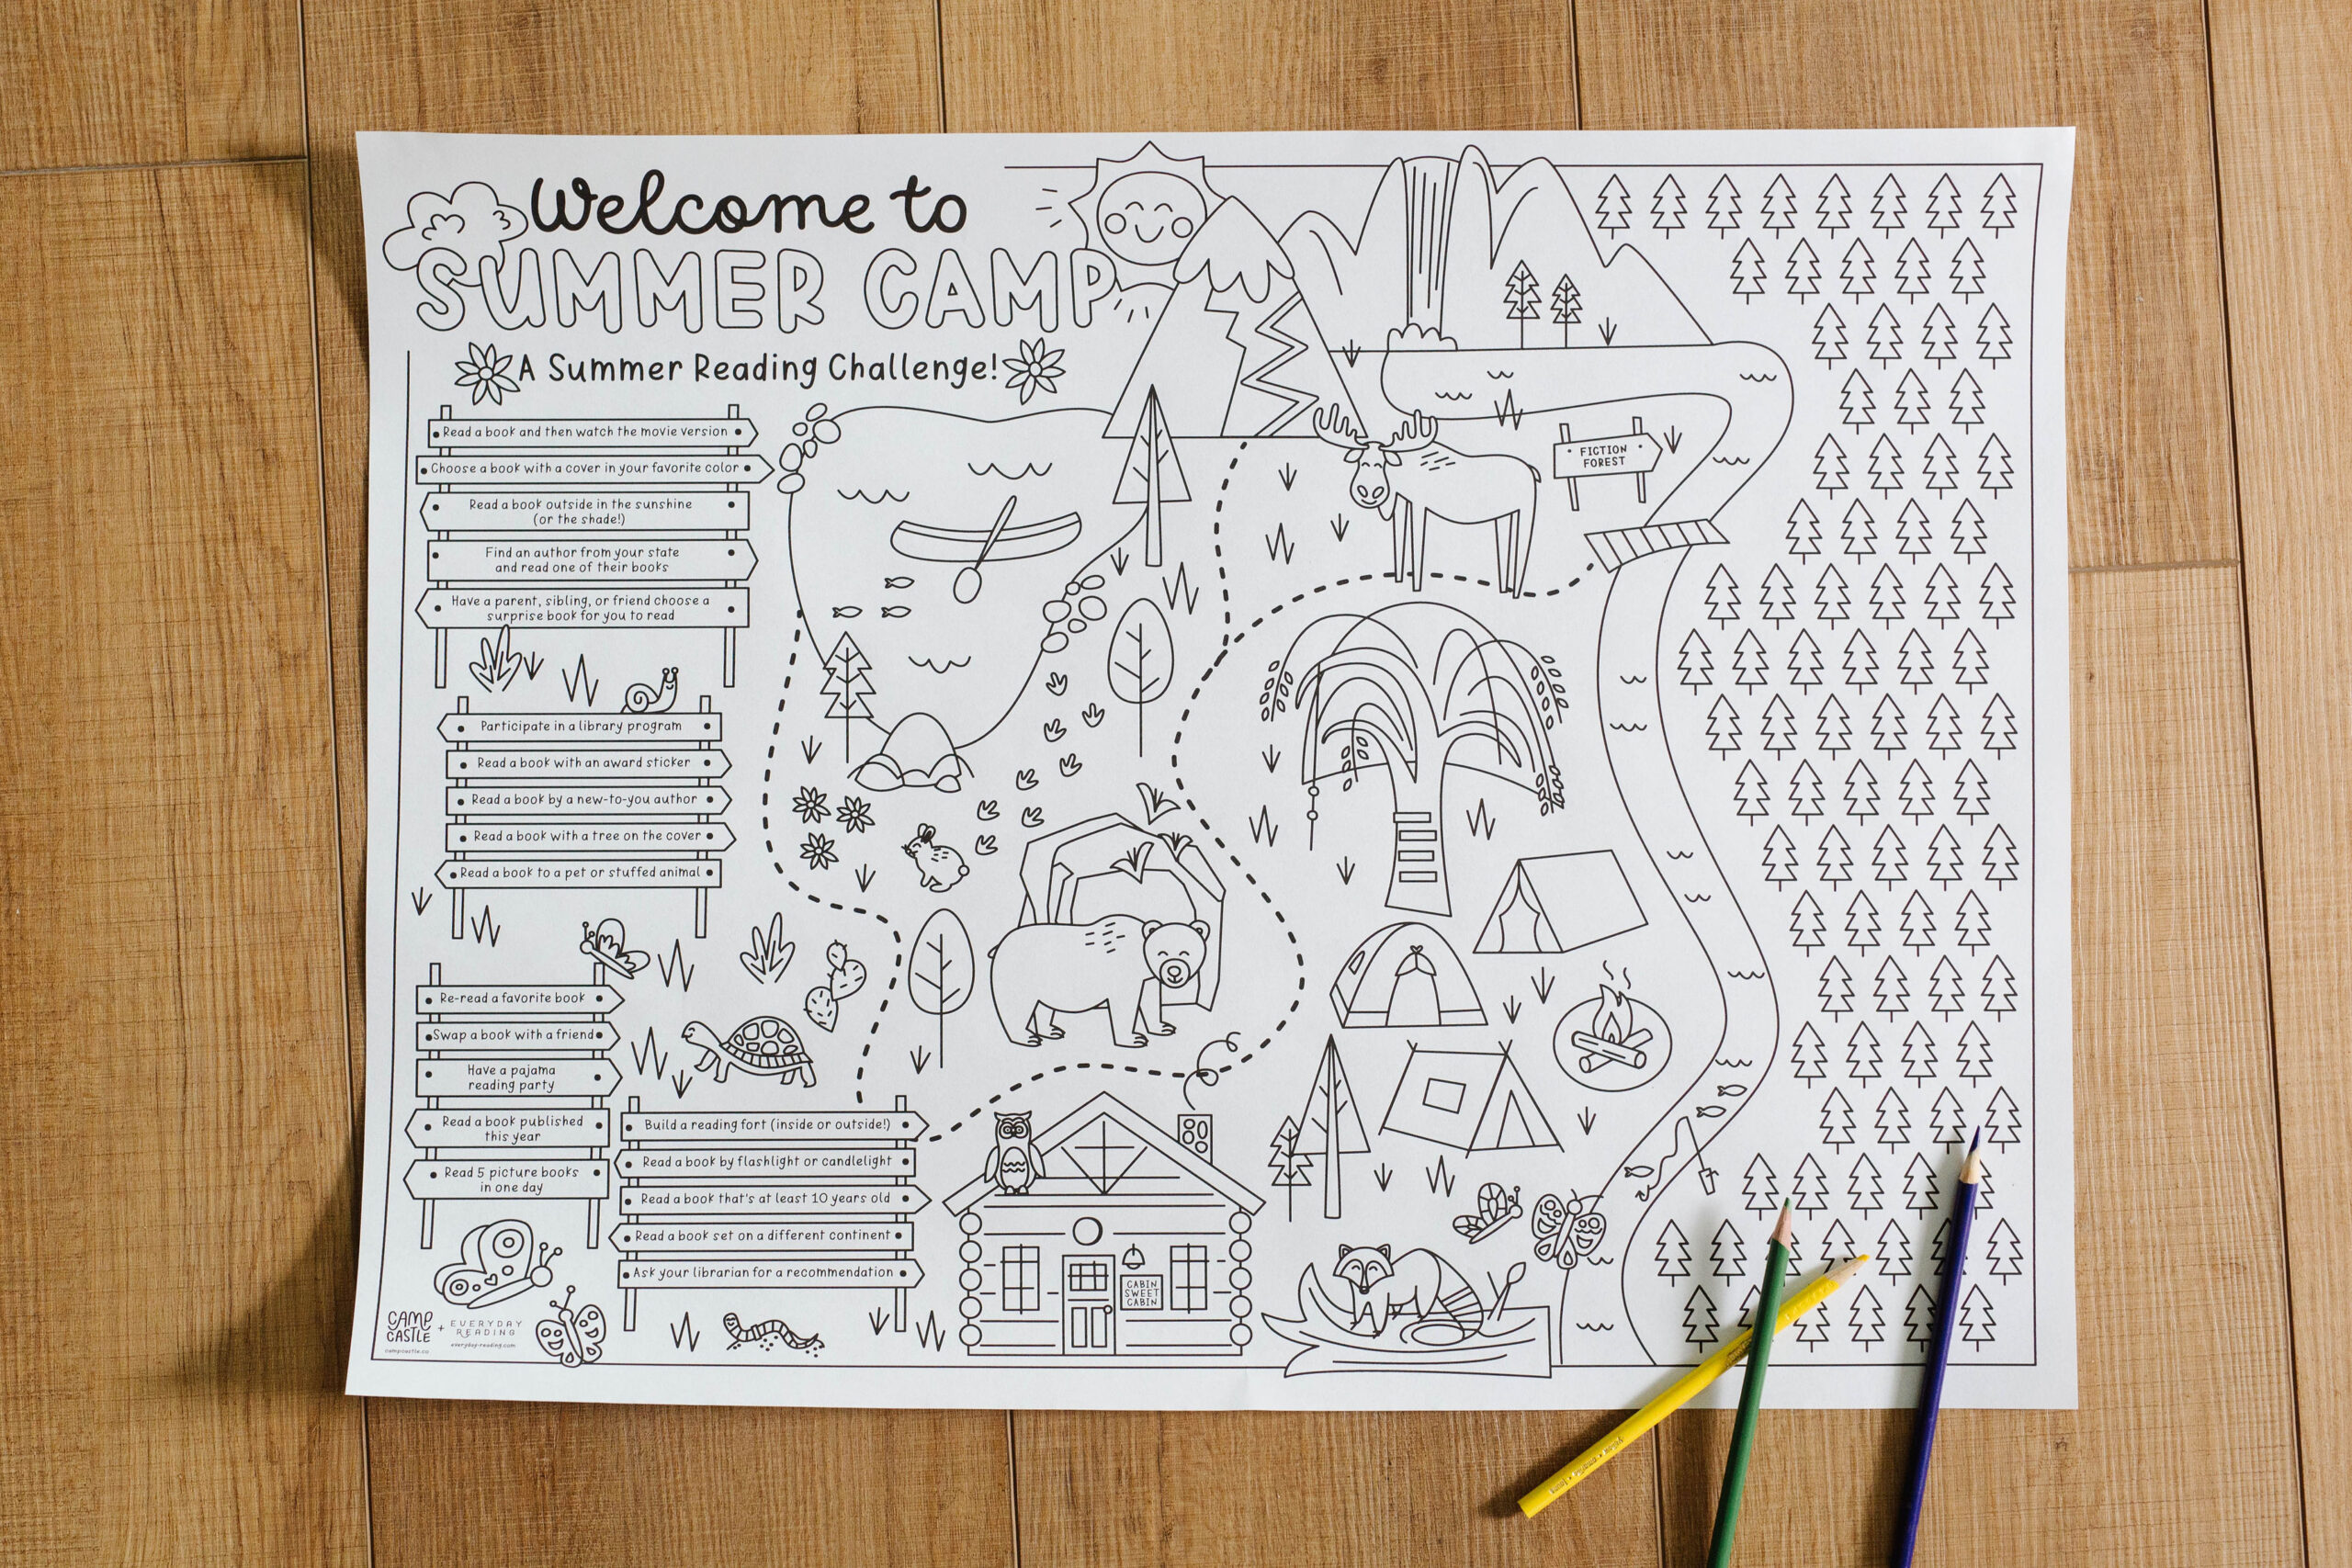 Welcome to
SUMMER CAMP
A Summer Reading Challenge!
Read a book and then watch the movie version
Choose a book with a cover in your favorite color
Read a book outside in the sunshine
(or the shade!)
Find an author from your state
and read one of their books
Have a parent, sibling, or friend choose a
surprise book for you to read
Participate in a library program
Read a book with an award sticker
Read a book by a new-to-you author
Read a book with a tree on the cover
Read a book to a pet or stuffed animal
Re-read a favorite book
Swap a book with a friend
Have a pajama
reading party
Read a book published
this year
Read 5 picture books
in one day
Build a reading fort (inside or outside!)
Read a book by flashlight or candlelight
Read a book that's at least 10 years old
Read a book set on a different continent
Ask your librarian for a recommendation
FICTION
FOREST
CABIN
SWEET
CABIN
CAMP
CASTLE
campcastle.co
+
EVERYDAY
READING
everyday-reading.com